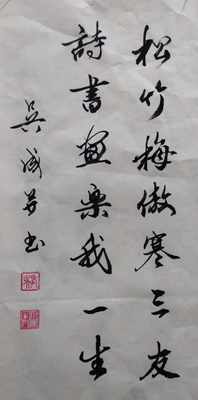 松竹梅傲寒三友
詩書畫樂我一生
吳成芳书